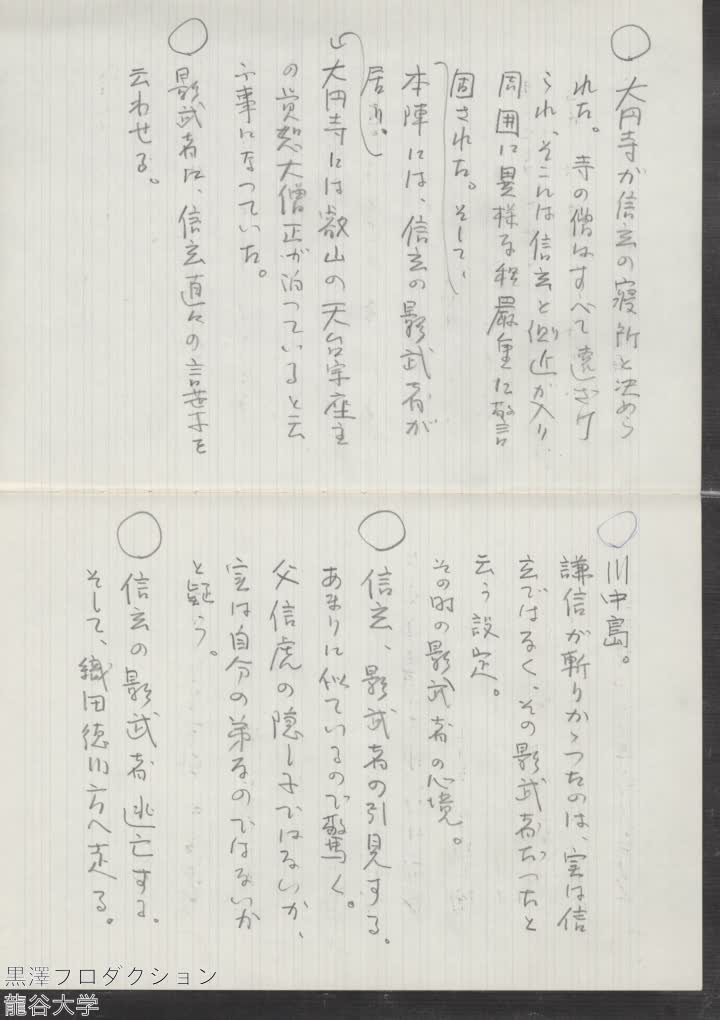 ○ 大円寺が信玄の寝所と決めら
れた。寺の僧はすべて遠ざけ
られ、そこには信玄と側近が入り
周囲に異様な程厳重に警
固された。そして、
本陣には、信玄の影武者が
居り。
大円寺には叡山の天台宗座主
の 大僧正が泊っていると云
ふ事になっていた。
○ 影武者に、信玄直々の言葉を
云わせる。
○ 川中島。
謙信が斬りかゝったのは、実は信
玄ではなく、その影武者だったと
云う設定。
その時の影武者の心境。
○ 信玄、影武者の引見する。
あまりに似ているので驚く。
父信虎の隠し子ではないか、
実は自分の弟なのではないか
と疑う。
○ 信玄の影武者逃亡する。
そして、織田徳川方へ走る。
黒澤プロダクション
龍谷大学